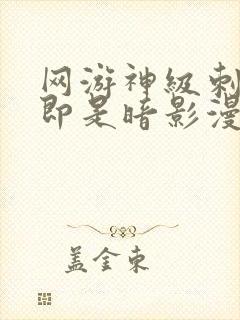 网游神级刺
即是暗影漫
盖金东